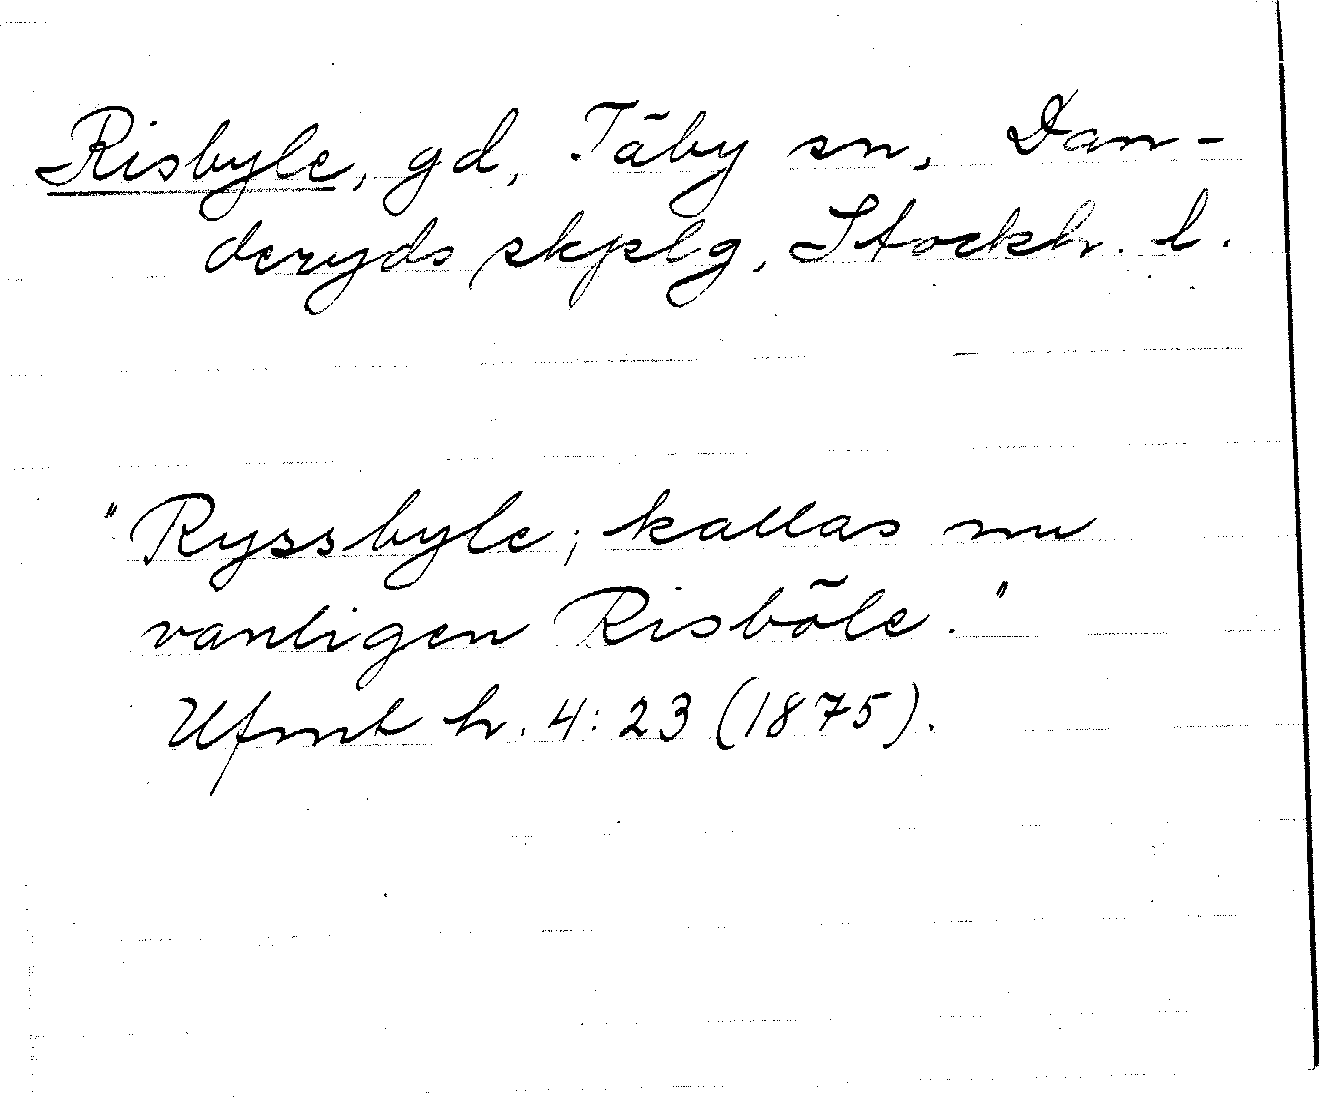 Risbyle, gd, Täby sn, Dan-
deryds skplg, Stockh. l.
"Ryssbyle; kallas nu
vanligen Risböle."
Ufmt h. 4:23 (1875).